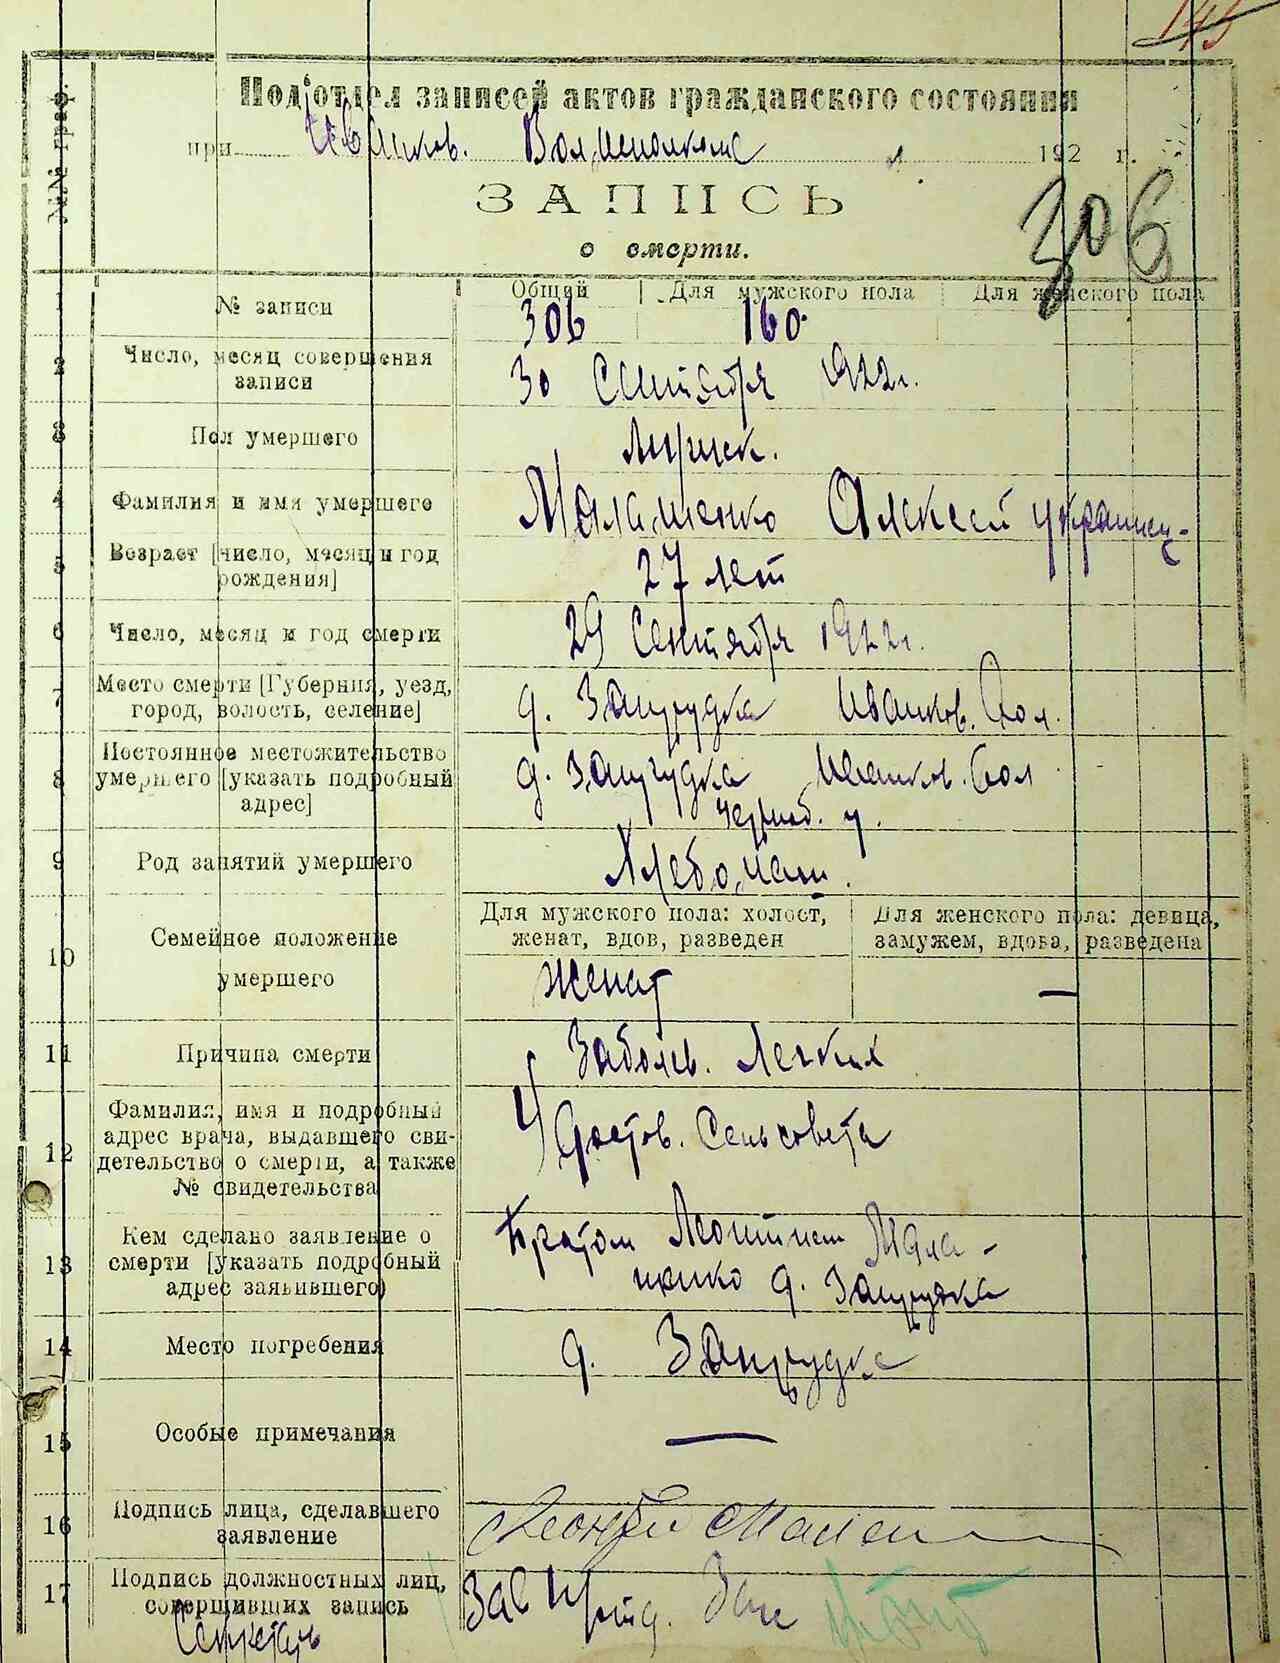 145
№№ граф.
Под'отдел записей актов гражданского состояния
при Иванков. Волисполкоме 192 г.
ЗАПИСЬ
о смерти.
306
1 № записи Общий Для мужского пола Для женского пола
306 160
2 Число, месяц совершения
записи
30 Сентября 1922 г.
3 Пол умершего Мужск.
4 Фамилия и имя умершего Малашенко Алексей украинец
5 Возраст [число, месяц и год
рождения]
27 лет
6 Число, месяц и год смерти 29 Сентября 1922 г.
7 Место смерти [Губерния, уезд,
город, волость, селение]
д. Запрудка Иванков. Вол.
8 Постоянное местожительство
умершего [указать подробный
адрес]
д. Запрудка Иванков. Вол
Черноб. у.
9 Род занятий умершего Хлебопаш.
10 Семейное положение
умершего
Для мужского пола: холост,
женат, вдов, разведен
Для женского пола: девица,
замужем, вдова, разведена
женат —
11 Причина смерти Заболев. Легких
12 Фамилия, имя и подробный
адрес врача, выдавшего сви-
детельство о смерти, а также
№ свидетельства
Удостов. Сельсовета
13 Кем сделано заявление о
смерти [указать подробный
адрес заявившего)
Братом Леонтием Мала-
шенко д. Запрудка
14 Место погребения д. Запрудка
15 Особые примечания —
16 Подпись лица, сделавшего
заявление
17 Подпись должностных лиц,
совершивших запись
Зав
Секретарь